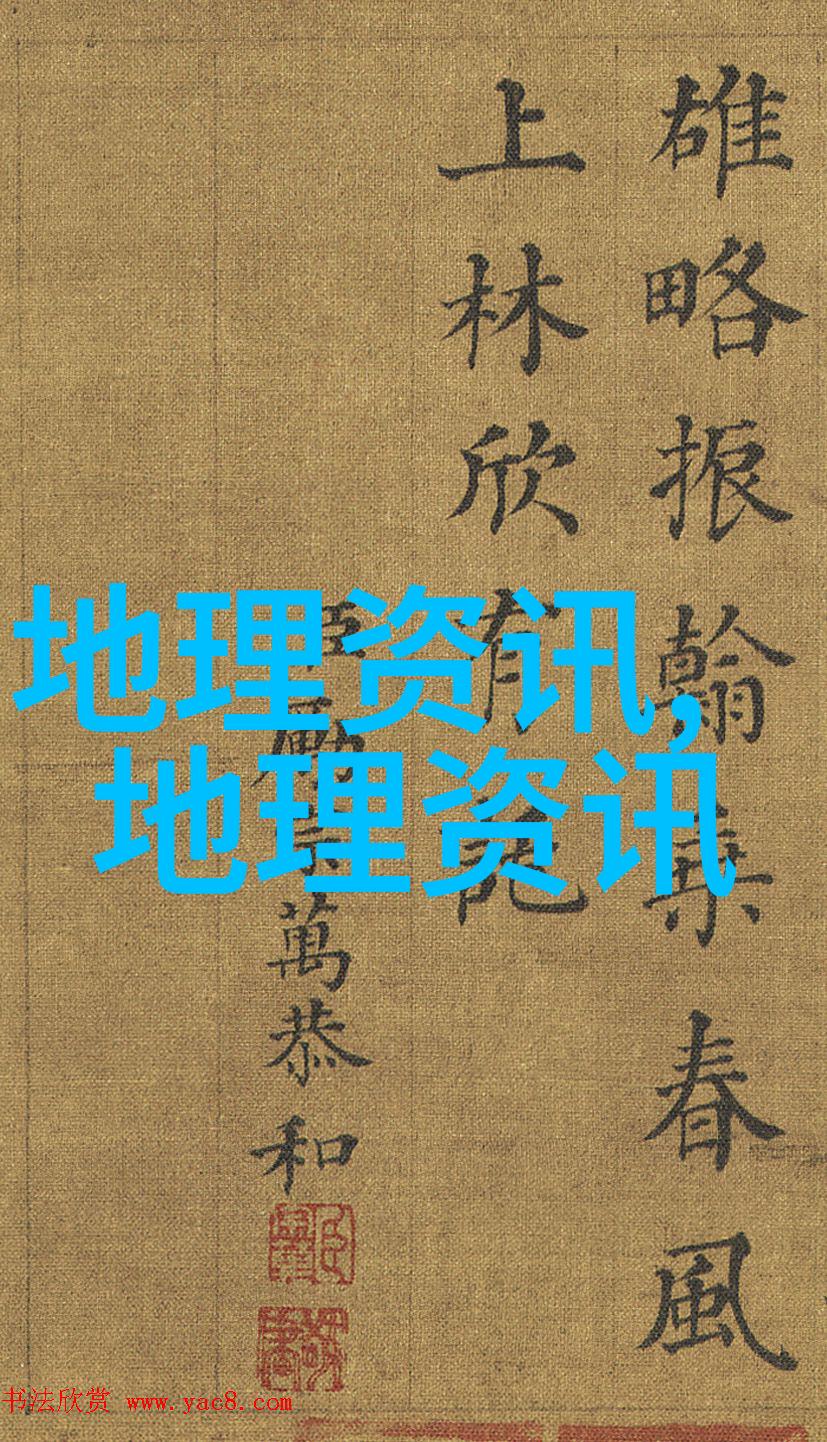 雄略振翰乘春風
上林欣有託
臣勵宗萬恭和
地理资讯,
地理资讯
书法欣赏 www.yac8.com